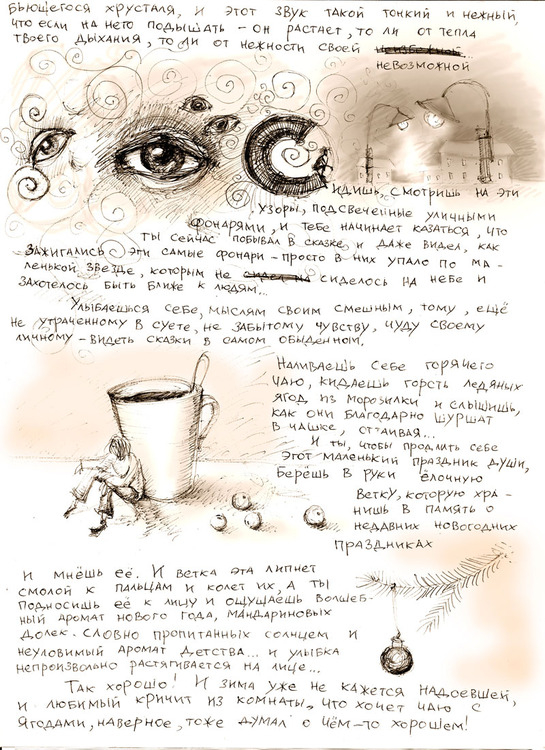 бьющегося хрусталя, и этот звук такой тонкий и нежный,
что если на него подышать – он растает, то ли от тепла
твоего дыхания, то ли от нежности своей
невозможной
Сидишь, смотришь на эти
узоры, подсвеченные уличными
фонарями, и тебе начинает казаться, что
ты сейчас побывал в сказке и даже видел, как
зажигались эти самые фонари – просто в них упало по ма-
ленькой звезде, которым не сиделось на небе и
захотелось быть ближе к людям...
Улыбаешься себе, мыслям своим смешным, тому, ещё
не утраченному в суете, не забытому чувству, чуду своему
личному – видеть сказки в самом обыденном.
Наливаешь себе горячего
чаю, кидаешь горсть ледяных
ягод из морозилки и слышишь,
как они благодарно шуршат
в чашке, оттаивая...
И ты, чтобы продлить себе
этот маленький праздник души,
берёшь в руки ёлочную
ветку, которую хра-
нишь в память о
недавних новогодних
праздниках
и мнёшь её. И ветка эта липнет
смолой к пальцам и колет их, а ты
подносишь её к лицу и ощущаешь волшеб-
ный аромат нового года, мандариновых
долек. Словно пропитанных солнцем и
неуловимый аромат детства... и улыбка
непроизвольно растягивается на лице...
Так хорошо! И зима уже не кажется надоевшей,
и любимый кричит из комнаты, что хочет чаю с
ягодами, наверное, тоже думал о чём-то хорошем!